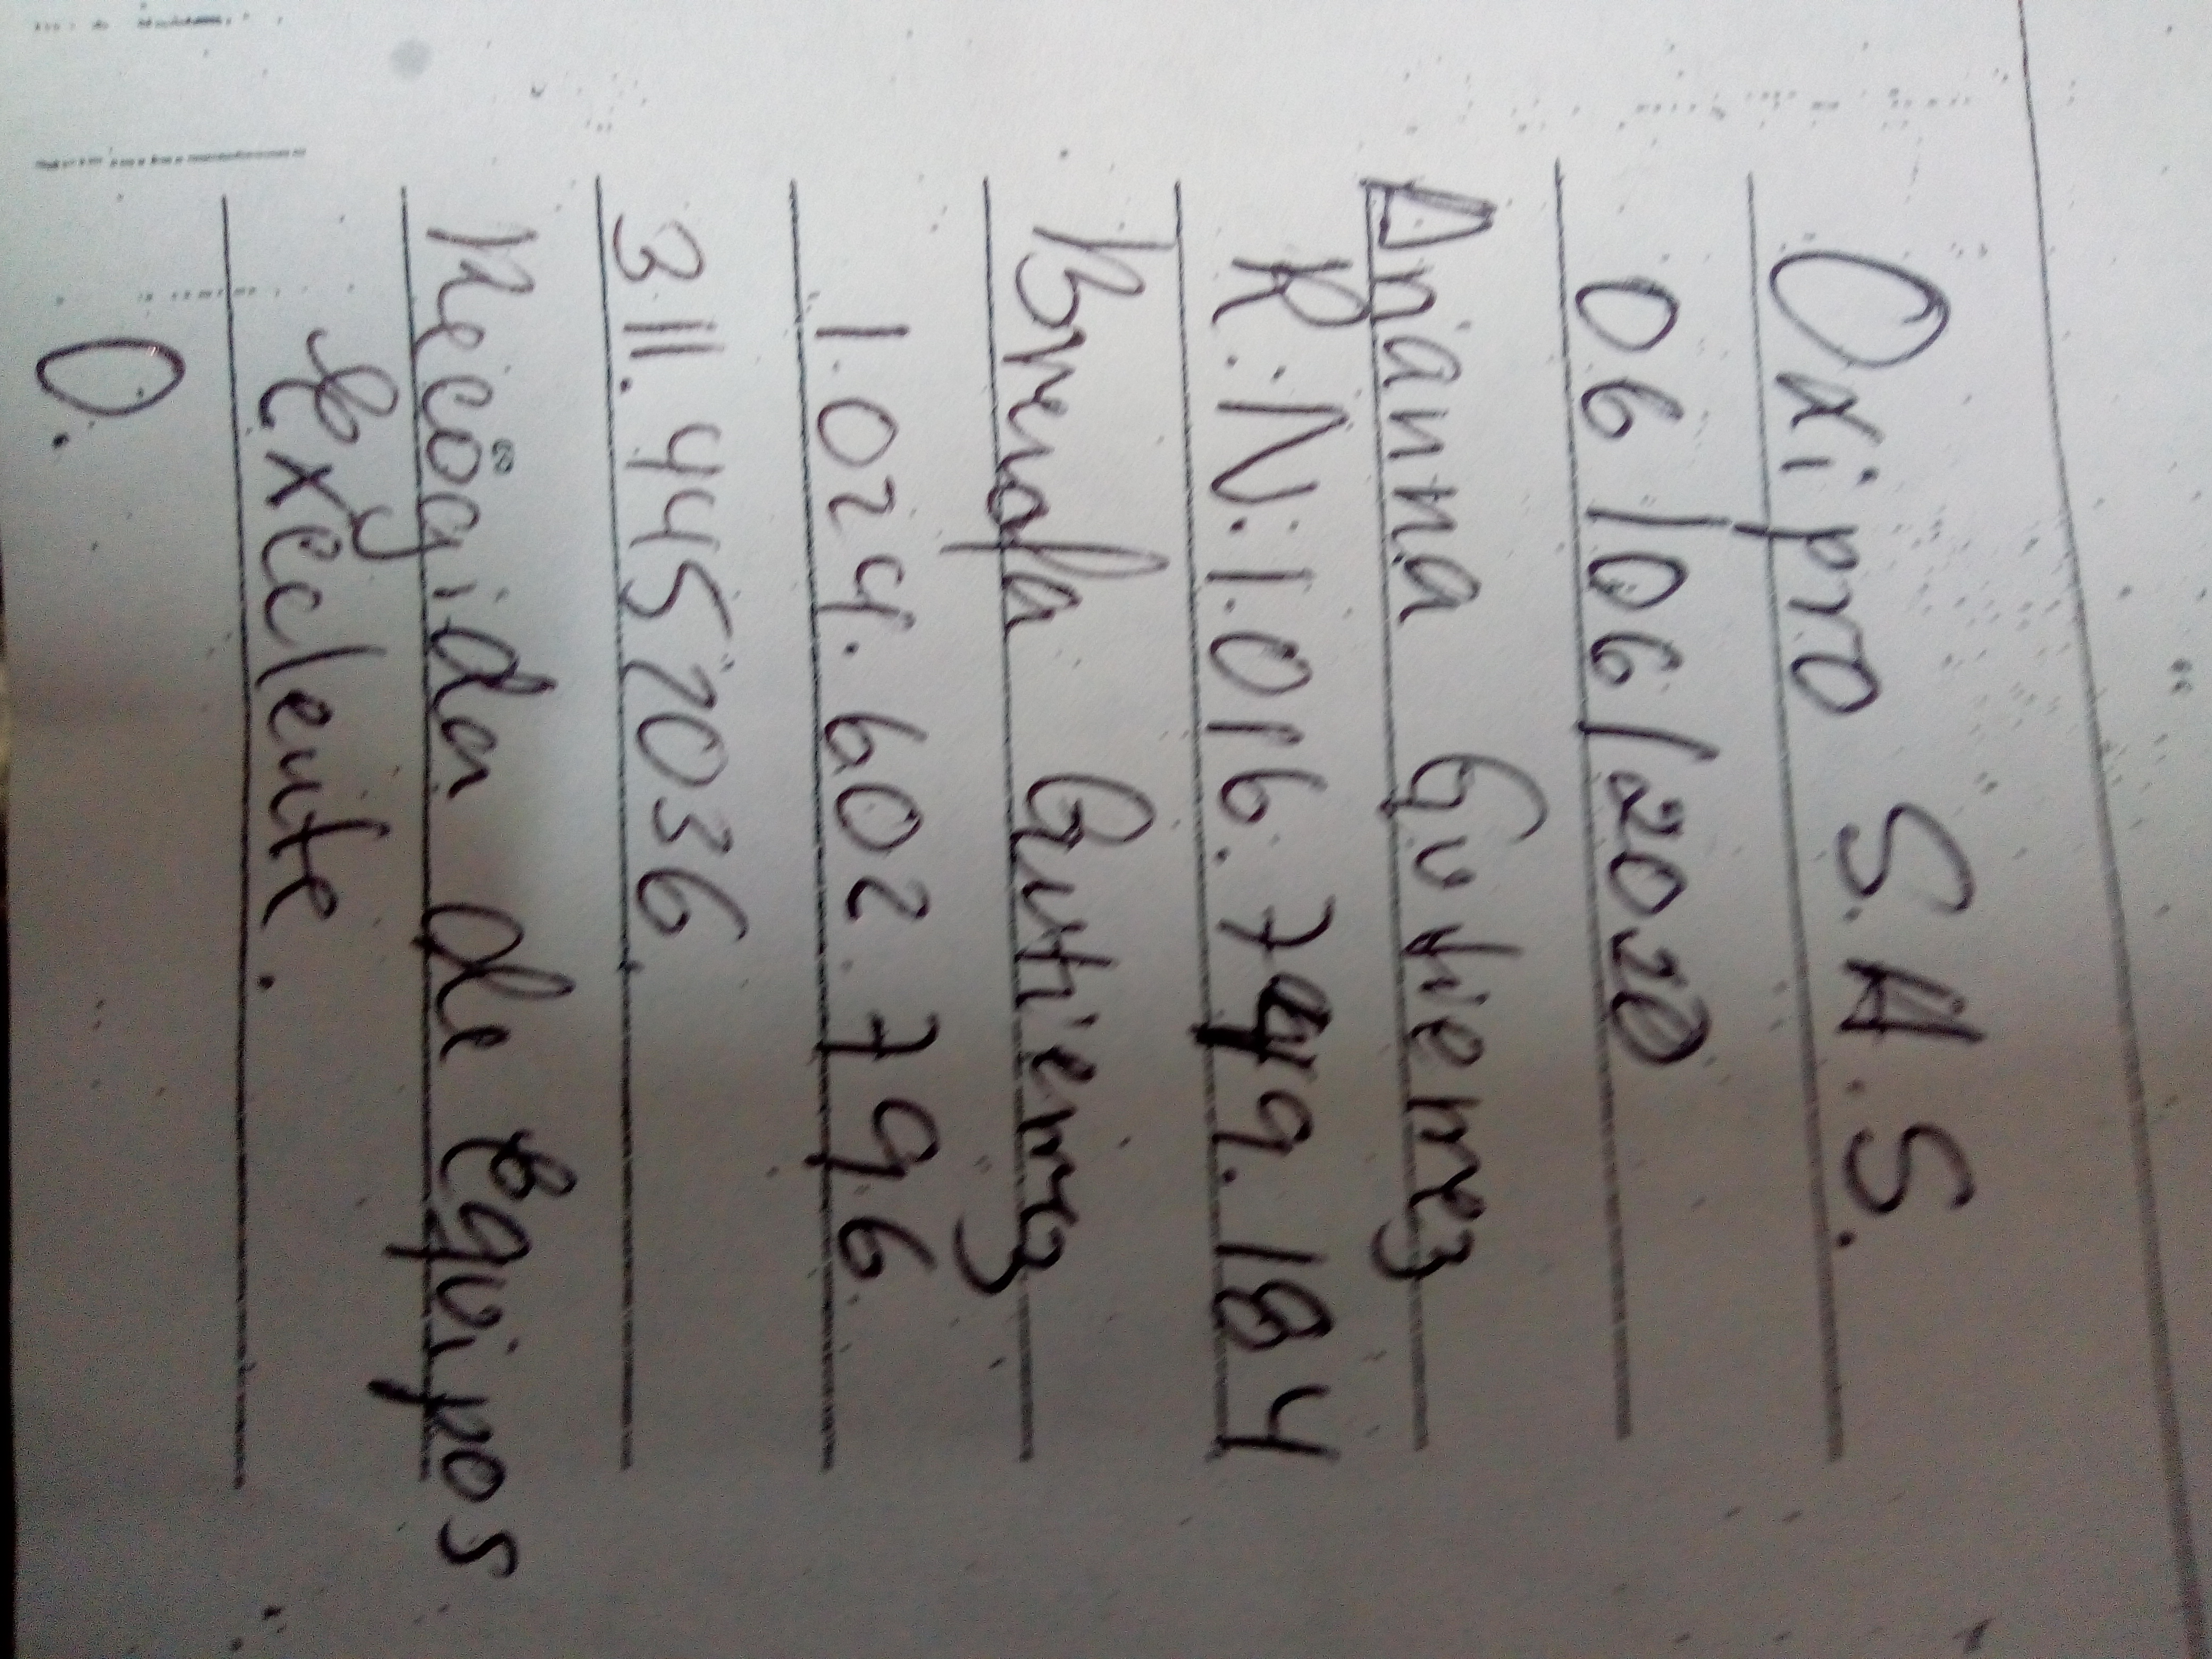 Oxipro S.A.S.
06/06/2020
Anianna Gutierrez
R.N: 1.016.749.184
Brenda Gutierrez
1.024.602.796
311.4452036.
Recogida de Equipos
& Execlente.
0.